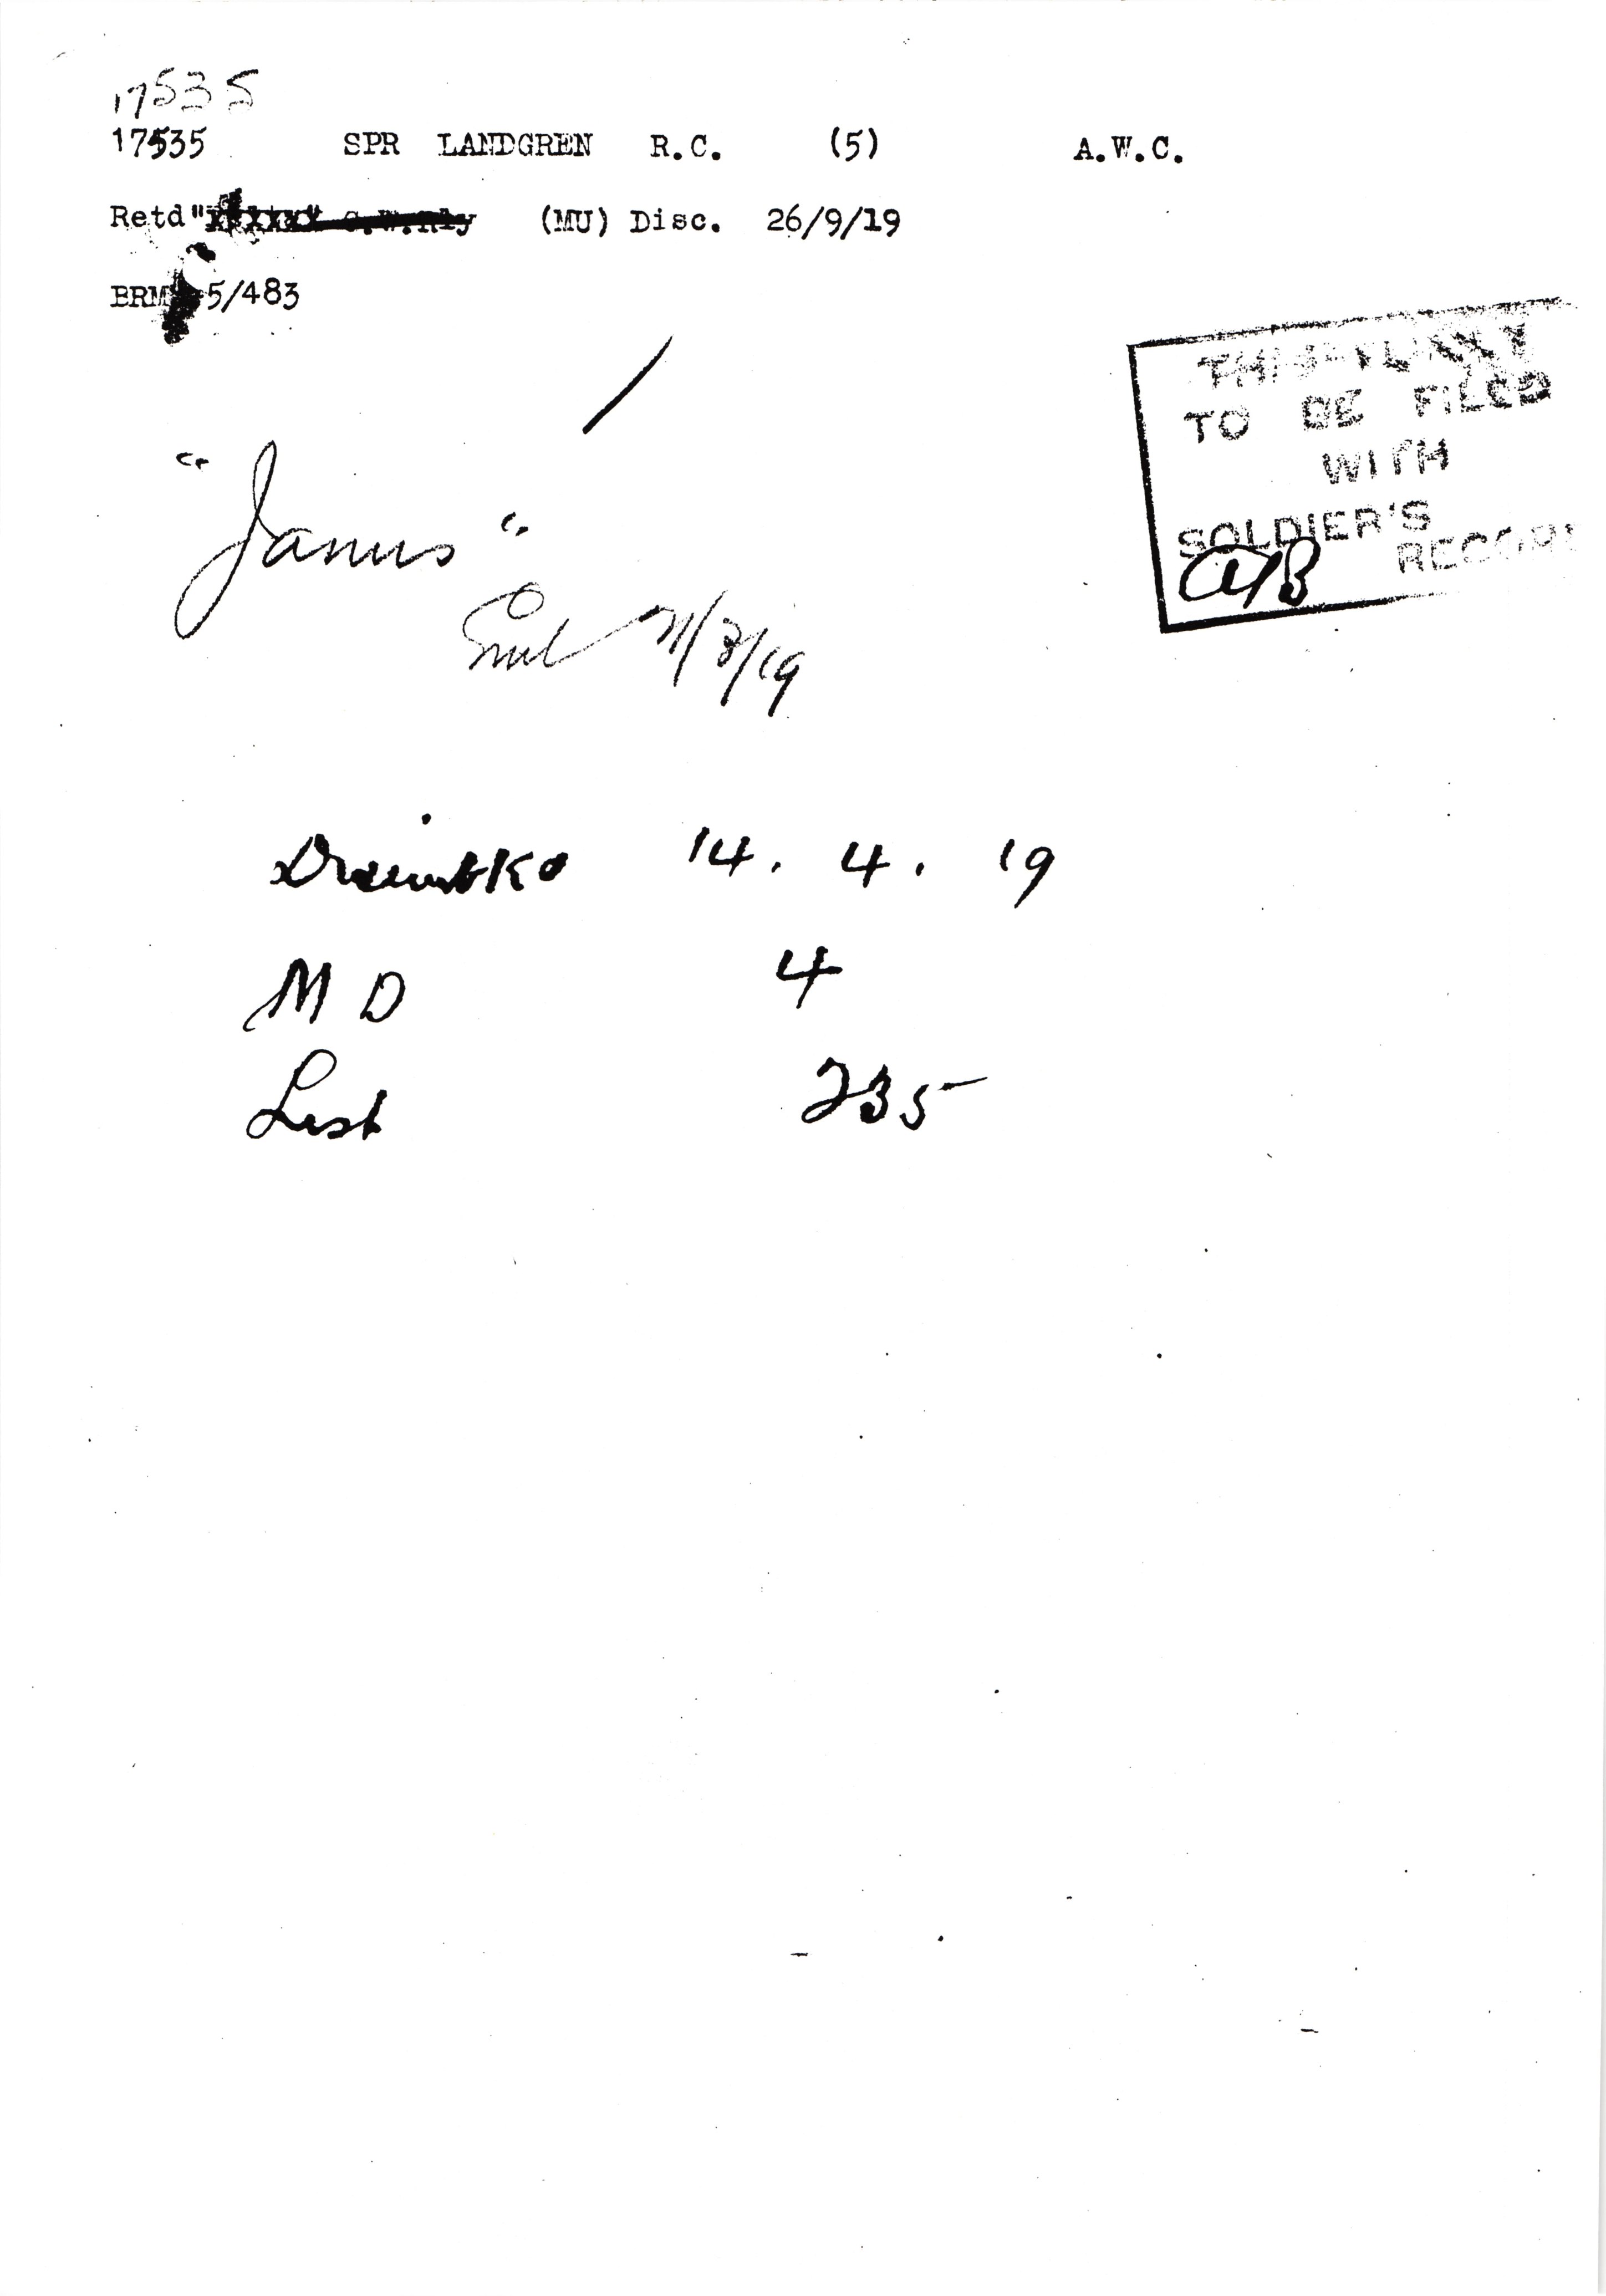 17535
17535 SPR LANDGREN R.C. (5) A.W.C.
Retd " (MU) Disc. 26/9/19
BRM 5/483
THIS
TO BE FILED
WITH
SOLDIER'S
RECOR
"Janus"
/19
14. 4. 19
M D 4
List 235